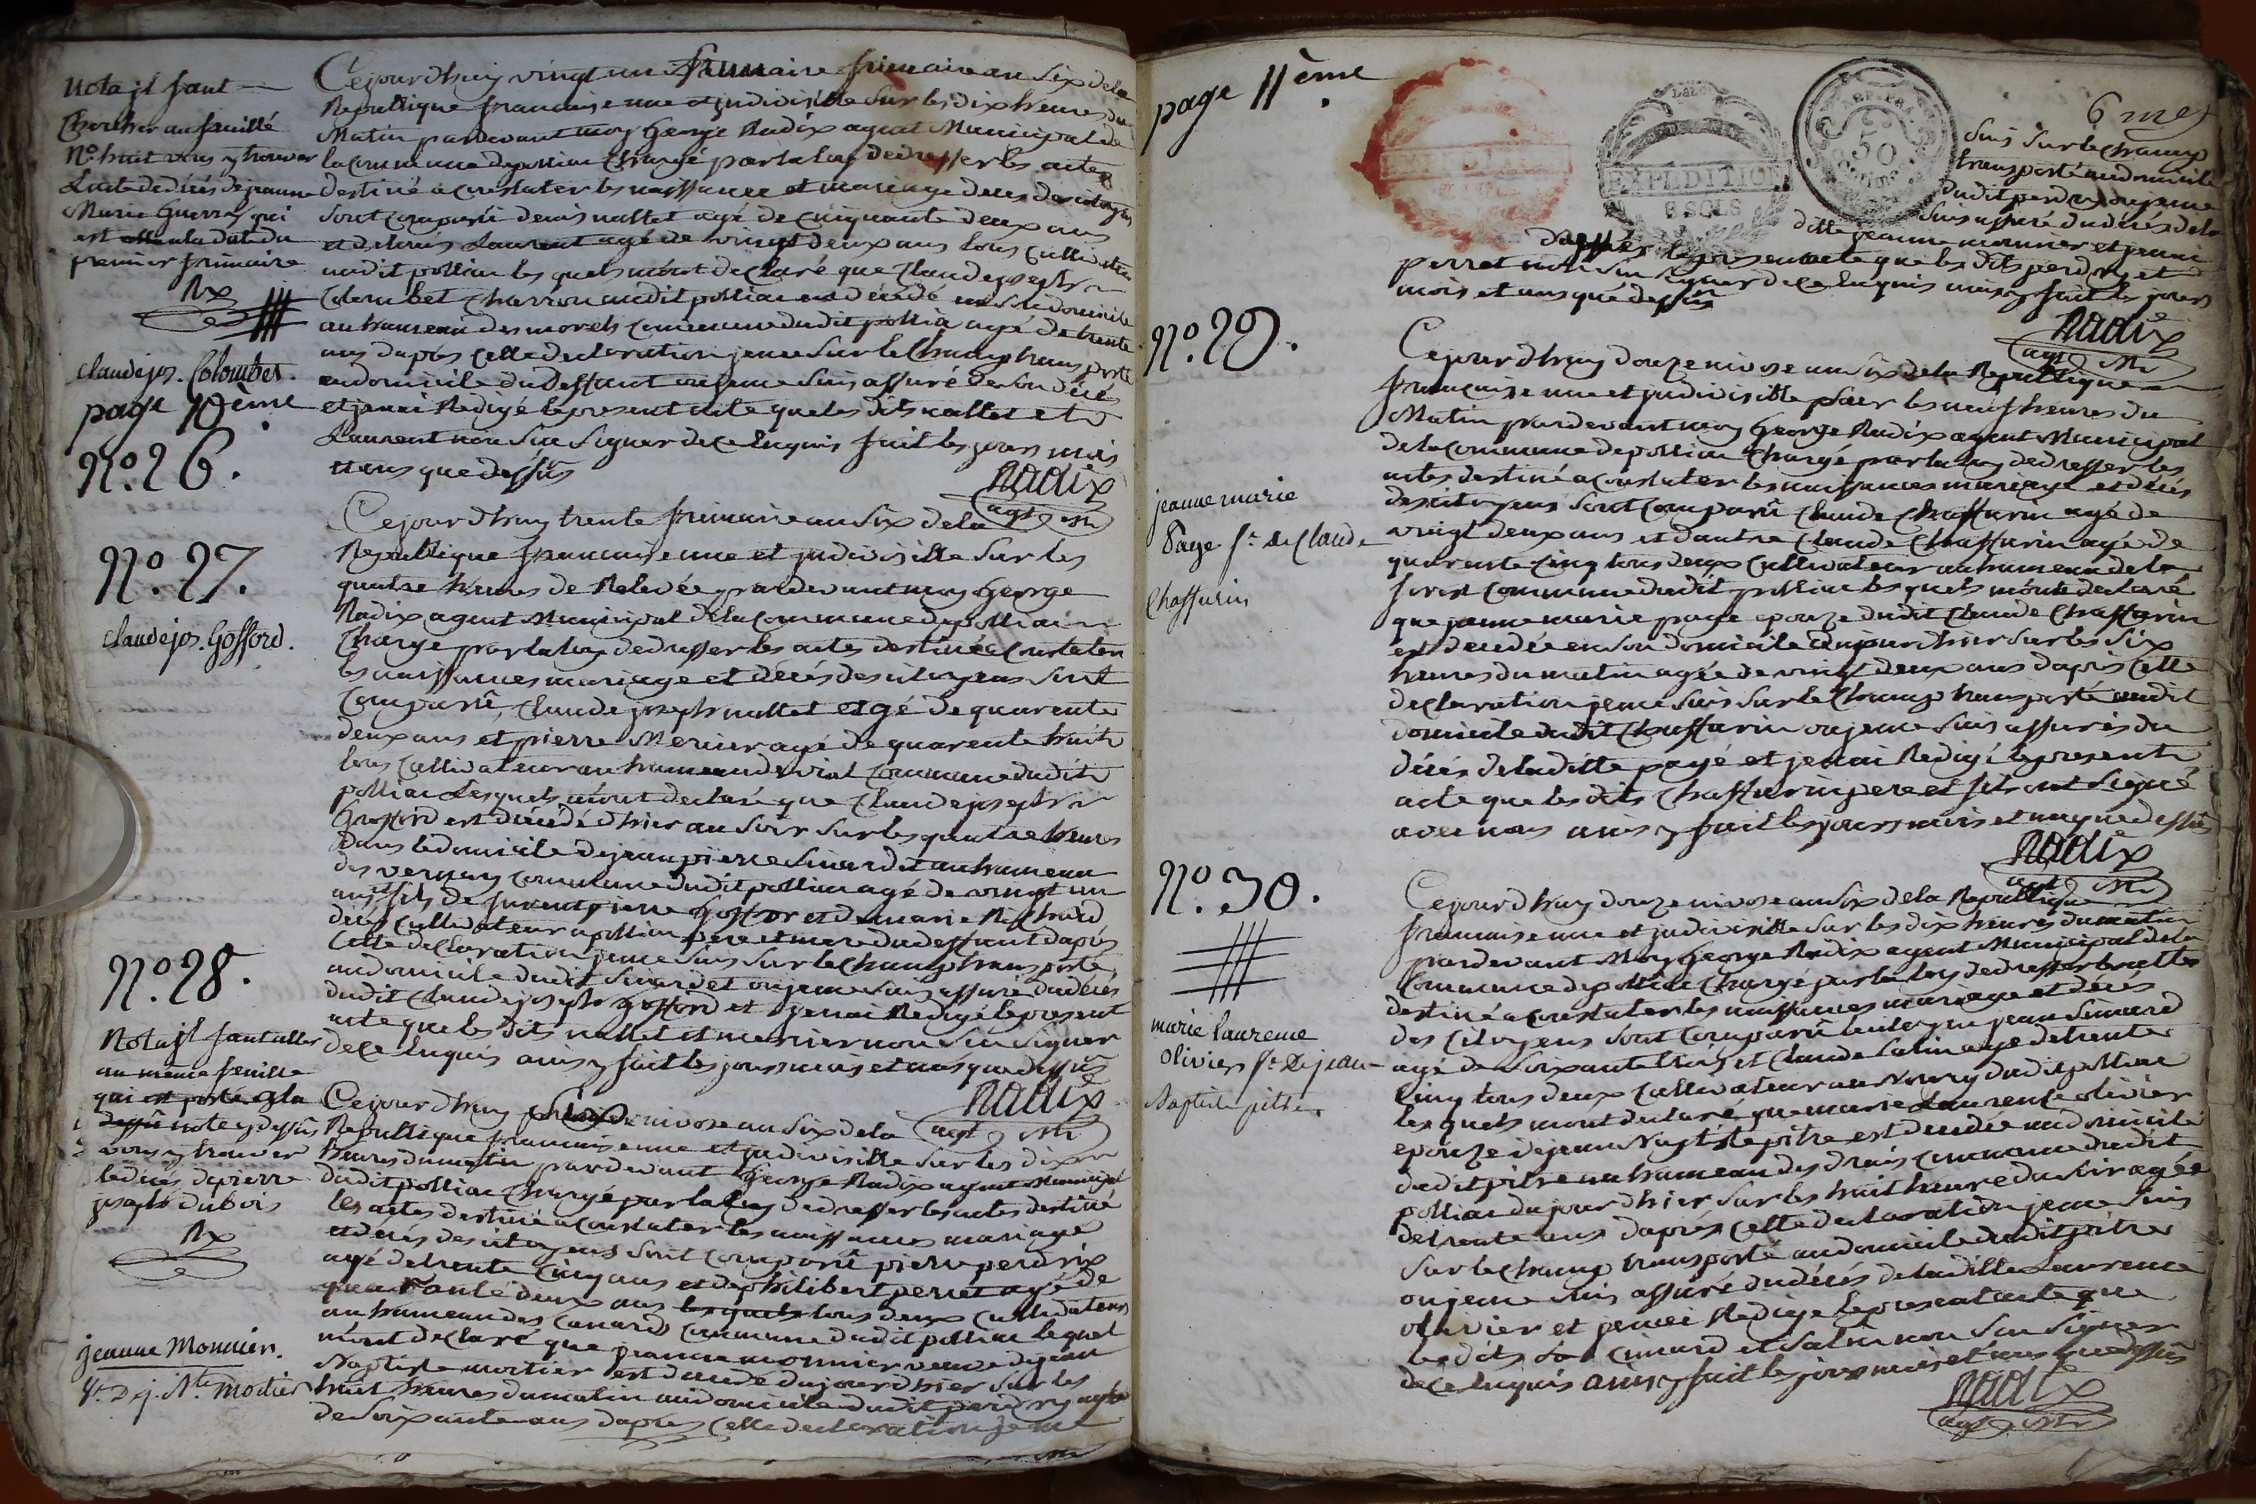 nota jl faut
Chercher au feuillé
N.º huit vous y trouver
Lacte de décés de jeanne
Marie Guerry qui
est a la date du
premier frimaire
Rx
Claude jos. Colombet.
page 10ème
N.º 26.
Cejourdhuy vingt un frimaire an six de la
Republique francaise une et jndivisible sur les dix heures du
Matin pardevant moy George Radix agent Municipal de
la Commune de polliac Chargé par la loy de dresser les actes
destiné a Constater les naissance et mariage deces des citoyens
sont comparû denis nallet agé de cinquante deux ans
et de Laurent agé de vingt deux ans tous cultivateur
audit polliac les quels mónt de Claré que Claude joseph
Colombet Charron audit polliac est décedé en son domicile
au hameau des morels commune dudit polliac agé de trente
ans daprés cette declaration je me sur le Champ transporté
au domicile du deffunt ou je me suis assuré de son décés
et jenai Redigé le present acte que les dits nallet et
Laurent non sçu signer de ce Enquis fait les jours mois
et ans que dessûs
Radix
agt M
N.º 27.
Claude jos. Gofford.
Cejourdhuy trente frimaire an six de la
Republique francaise une et jndivisible sur les
quatre heures de Relevée pardevant moy George
Radix agent Municipal de la Commune de polliac
Charge par la loy de dresser les actes destiné a Constater
les naissances mariage et décés des citoyens sont
comparû, Claude joseph nallet agé de quarente
deux ans et pierre Mercier agé de quarente huit
tous cultivateur au hameau de viol commune dudit
polliac Lesquels mónt declaré que Claude joseph
Gofford est décedé dhier au soir sur les quatre heures
dans le domicile de jean pierre Sinardet au hameau
des vernay commune dudit polliac agé de vingt un
ans fils de pierre Gofford et de marie Richard
cultivateur a polliac pere et mere du deffunt daprés
Cette declaration je me suis sur le Champ transporté
au domicile dudit Sinardet ou je me suis assuré du décés
dudit Claude joseph Gofford et jenai Redigé le present
acte que les dits nallet et mercier non sçu signer
de ce Enquis ainsy fait les jours mois et ans que dessûs
Radix
agt M
N.º 28.
Nota jl faut aller
au même feuille
qui est porté a la
note cy dessûs,
vous y trouver
le décés de pierre
joseph dubois
Rx
jeanne Monnier.
Ve. de j. Bte. Mortier
Cejourdhuy six nivose an six de la
Republique francaise une et jndivisible sur les dix
heures du matin pardevant George Radix agent Municipal
dudit polliac Chargé par la loy de dresser les actes destiné
les actes destiné a Constater les naissances mariage
et décés des citoyens sont comparû pierre perdrix
agé de trente cinq ans et de philibert perret agé de
quarante deux ans les quels tous deux cultivateurs
au hameau des Canards commune dudit polliac lequel
mónt declaré que jeanne monnier veuve de jean
Baptiste mortier est decedé du jour dhier sur les
huit heures du matin au domicile dudit perdrix agée
de soixante ans daprés cette declaration je me
page 11ème
6 me
EXPEDITION
8 SOLS
50
suis sur le Champ
transporté au domicile
dudit perdrix ou je me
suis assuré du décés de la
ditte jeanne monnier et jenai
le present acte que les dits perdrix et
perret non sçu signer de ce Enquis ainsy fait les jours
mois et ans que dessûs
Radix
agt M
N.º 29.
jeanne marie
page fe. de Claude
Chaffurin
Cejourdhuy douze nivose an six de la Republique
francaise une et jndivisible sur les neuf heures du
Matin pardevant moy George Radix agent Municipal
de la commune de polliac Chargé par la loy de dresser les
actes destiné a Constater les naissances mariage et décés
des citoyens sont comparû Claude Chaffurin agé de
vingt deux ans et dautre Claude Chaffurin agé de
quarente cinq tous deux cultivateur au hameau de la
forest commune dudit polliac les quels mónt declaré
que jeanne marie page epouze dudit Claude Chaffurin
est decedée en son domicile du jour dhier sur les six
heures du matin agée de vingt deux ans daprés cette
declaration je me suis sur le Champ transporté audit
domicile dudit Chaffurin ou je me suis assurés du
décés de la ditte page et jenai Redigé le present
acte que les dits Chaffurin pere et fils ont signé
avec nous ainsy fait les jours mois et an que dessûs
Radix
agt M
N.º 30.
marie laurence
olivier fe. de jean
Baptiste pitre
Cejourdhuy douze nivose an six de la Republique
francaise une et jndivisible sur les dix heures du matin
pardevant Moy George Radix agent Municipal de la
Commune de polliac Chargé par la loy de dresser les actes
destiné a Constater les naissances mariage et décés
des Citoyens sont comparû le citoyen jean Simard
agé de soixante trois et Claude Salin age de trente
cinq tous deux cultivateur au dudit polliac
les quels mont declaré que marie Laurence olivier
epouze de jean Baptiste pitre est decedée au domicile
dudit pitre au hameau des drais commune dudit
polliac du jour dhier sur les huit heure du soir agée
de trente ans daprés cette declaration je me suis
sur le Champ transporté au domicile dudit pitre
ou je me suis assuré du décés de la ditte Laurence
olivier et jenai Redigé le present acte que
les dits Simard et Salin non sçu signer
de ce Enquis ainsy fait les jours mois et ans que dessûs
Radix
agt M